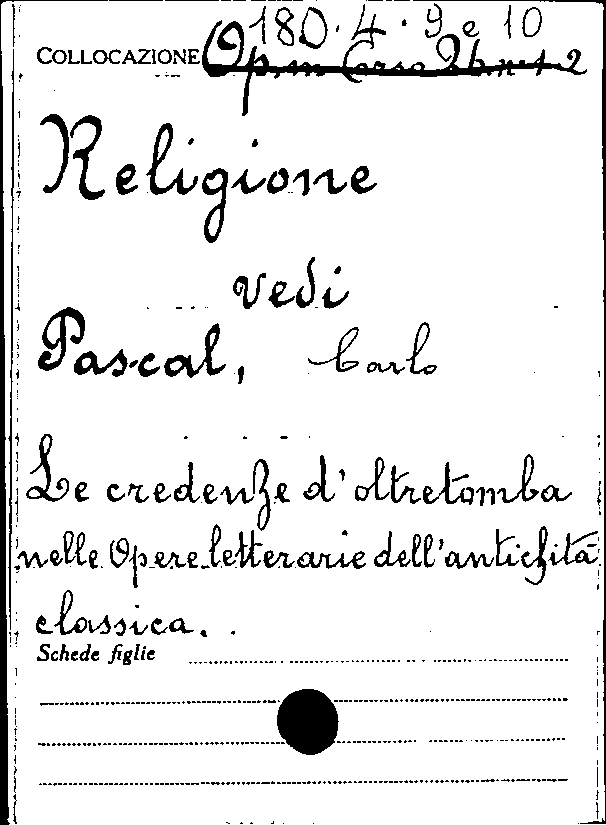 180. 4. 9 e 10
COLLOCAZIONE Op. in Corso 26. n. 1-2
Religione
vedi
Pascal, Carlo
Le credenze d'oltretomba
nelle Opere letterarie dell'antichità
classica.
Schede figlie